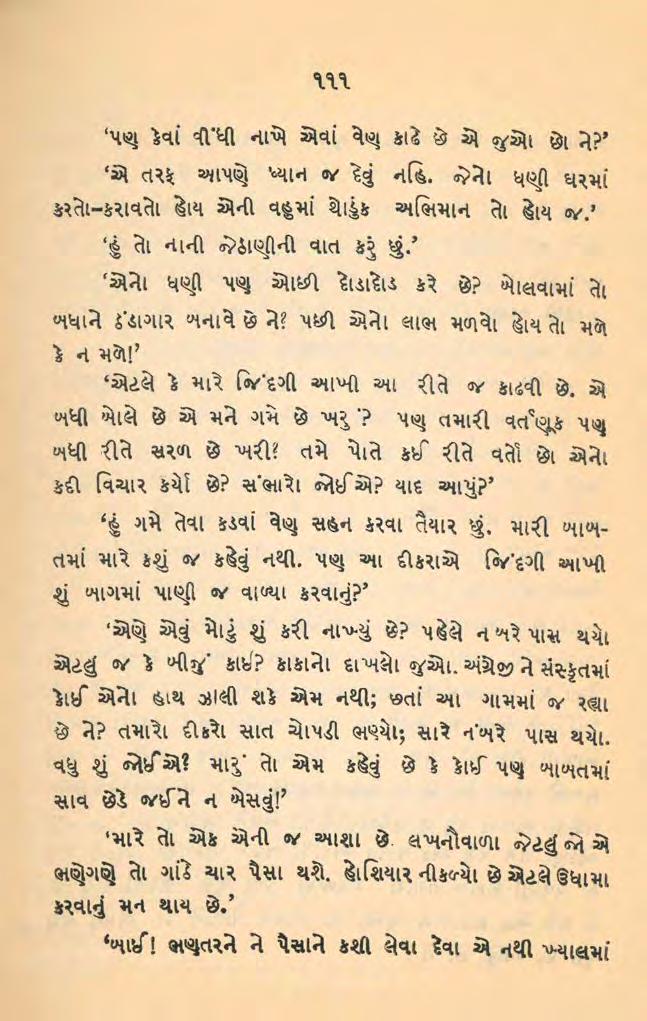 ૧૧૧
‘પણ કેવાં વીંધી નાખે એવાં વેણ કાઢે છે એ જુઓ છો ને?’
‘એ તરફ આપણે ધ્યાન જ દેવું નહિ. જેનો ધણી ઘરમાં
કરતો–કરાવતો હોય એની વહુમાં થોડુંક અભિમાન તો હોય જ.’
‘હું તો નાની જેઠાણીની વાત કરું છું.’
‘એનો ધણી પણ ઓછી દોડાદોડ કરે છે? બોલવામાં તો
બધાને ઠંડાગાર બનાવે છે ને? પછી એનો લાભ મળવો હોય તો મળે
કે ન મળે!’
‘એટલે કે મારે જિંદગી આખી આ રીતે જ કાઢવી છે. એ
બધી બોલે છે એ મને ગમે છે ખરું? પણ તમારી વર્તણૂક પણ
બધી રીતે સરળ છે ખરી? તમે પોતે કઈ રીતે વર્તો છો એનો
કદી વિચાર કર્યો છે? સંભારો જોઈએ? યાદ આપું?’
‘હું ગમે તેવા કડવાં વેણ સહન કરવા તૈયાર છું. મારી બાબ-
તમાં મારે કશું જ કહેવું નથી. પણ આ દીકરાએ જિંદગી આખી
શું બાગમાં પાણી જ વાળ્યા કરવાનું?’
‘એણે એવું મોટું શું કરી નાખ્યું છે? પહેલે નંબરે પાસ થયો
એટલું જ કે બીજું કાઈ? કાકાનો દાખલો જુઓ. અંગ્રેજી ને સંસ્કૃતમાં
કોઈ એનો હાથ ઝાલી શકે એમ નથી; છતાં આ ગામમાં જ રહ્યા
છે ને? તમારો દીકરો સાત ચોપડી ભણ્યો; સારે નંબરે પાસ થયો.
વધુ શું જોઈએ? મારું તો એમ કહેવું છે કે કોઈ પણ બાબતમાં
સાવ છેડે જઈને ન બેસવું!’
‘મારે તો એક એની જ આશા છે. લખનૌવાળા જેટલું જો એ
ભણેગણે તો ગાંઠે ચાર પૈસા થશે. હોશિયાર નીકળ્યો છે એટલે ઉધામા
કરવાનું મન થાય છે.’
‘બાઈ! ભણતરને ને પૈસાને કશી લેવા દેવા એ નથી ખ્યાલમાં